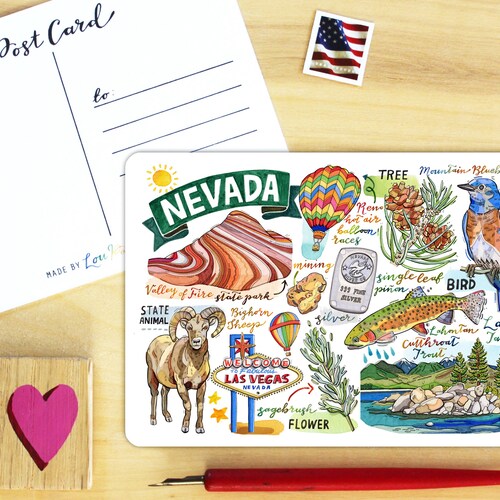 Post Card
to:
MADE BY Lou
NEVADA
Valley of Fire state park
Reno
hot air
balloon
races
mining
999 FINE
SILVER
silver
TREE
single leaf
piñon
Mountain Blueb
BIRD
Lahontan
Cutthroat
Trout
STATE
ANIMAL
Bighorn
Sheep
WELCOME
to Fabulous
LAS VEGAS
NEVADA
sagebrush
FLOWER